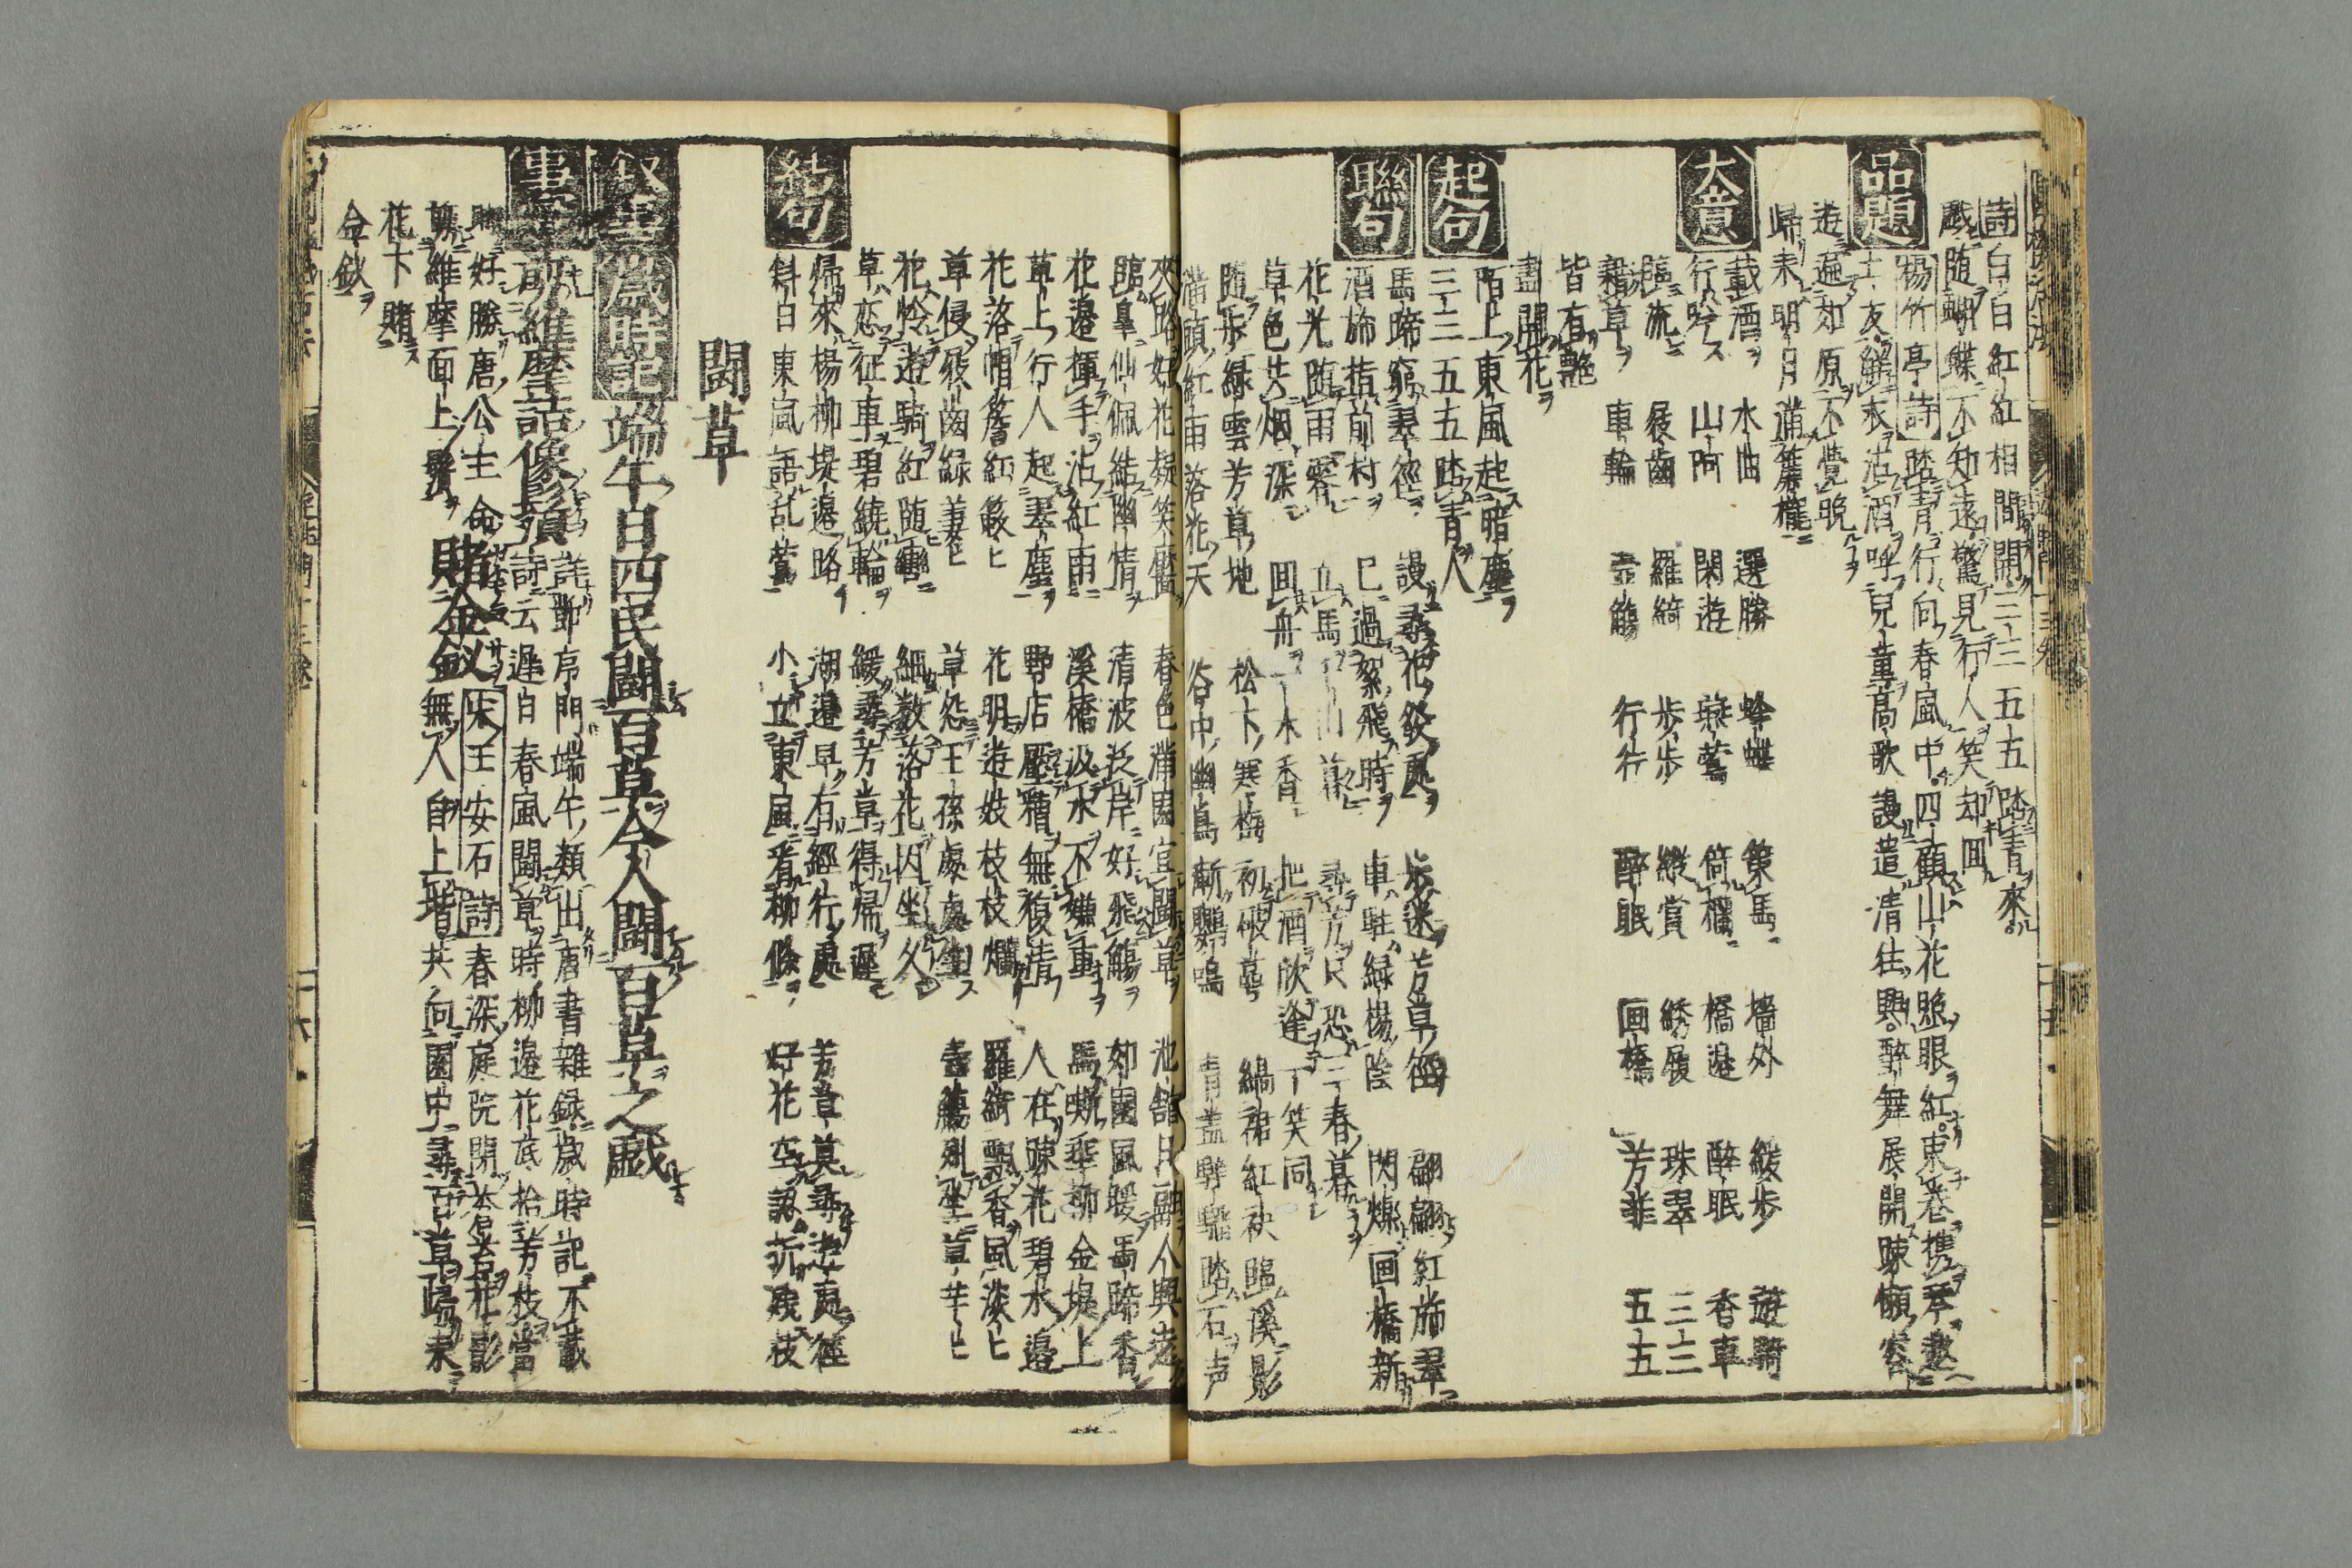 詩白白紅紅相間開三三五五踏青來
戯随蝴蝶不知遠驚見行人笑却回
品題
楊竹亭詩踏青行向春風中四顧山花照眼紅東巷携琴邀
士友解衣沽酒呼兒童高歌謾遣清狂興醉舞展開疎懶容
遊遍郊原不覚晩
歸来明月満簾櫳
大意
載酒 水曲 選勝 蜂蝶 策馬 墻外 緩歩 遊騎
行吟 山阿 閑遊 燕鶯 倚欄 橋邉 醉眠 香車
臨流 屐齒 羅綺 歩歩 縦賞 綉履 珠翠 三三
藉草 車輪 壺觴 行行 醉眠 画橋 芳菲 五五
皆有艶
盡開花
起句
陌上東風起暗塵
三三五五踏青人
聯句
馬蹄窮翠徑 謾尋花發處 歩迷芳草徑 翩翩紅旆翠
酒旆指前村 已過絮飛時 車駐緑楊陰 閃爍画橋新
花光随雨零 立馬 尋芳只恐三春暮
草色共烟深 回舟 木香 把酒欣逢一笑同
随歩緑雲芳草地 松下寒梅初破萼 縞裙紅袂臨溪影
満頭紅雨落花天 谷中幽鳥漸嚶鳴 青蓋驊騮踏石声
夾路好花凝笑靨 春色満園宜闘草 池舘
臨皐仙佩結幽情 清波泛岸好飛觴 郊園風暖馬蹄香
花邉揮手沾紅雨 溪橋汲水不嫌重 馬嘶垂柳金堤上
草上行人起翠塵 野店壓糟無復清 人在疎花碧水邉
花落帽簷紅簌ヒ 花明遊妓枝枝爛 羅綺飄香風淡ヒ
草侵屐齒緑萋ヒ 草怨王孫處處生 壺觴列坐草芊ヒ
花怜遊騎紅随轡 細数落花因坐久
草恋征車碧繞輪 緩尋芳草得帰遲
結句
帰來楊柳堤邉路 湖邉早有經行處 芳草莫尋 處徑
斜日東風語乱鶯 小立東風看柳條 好花空認折殘枝
闘草
叙事 歳時記 端午日四民闘百草今人闘百草之戯
事實 前維摩詰像鬚 詫節序門端午類出唐書雜録歳時記不載
詩云遲日春風闘草時柳邉花底拾芳枝當
時好勝唐公主命 賭金釵 宋王安石詩 春深庭院閉蒼苔花影
剪維摩面上鬚 無人自上堦共向園中尋百草歸来
花下賭
金釵